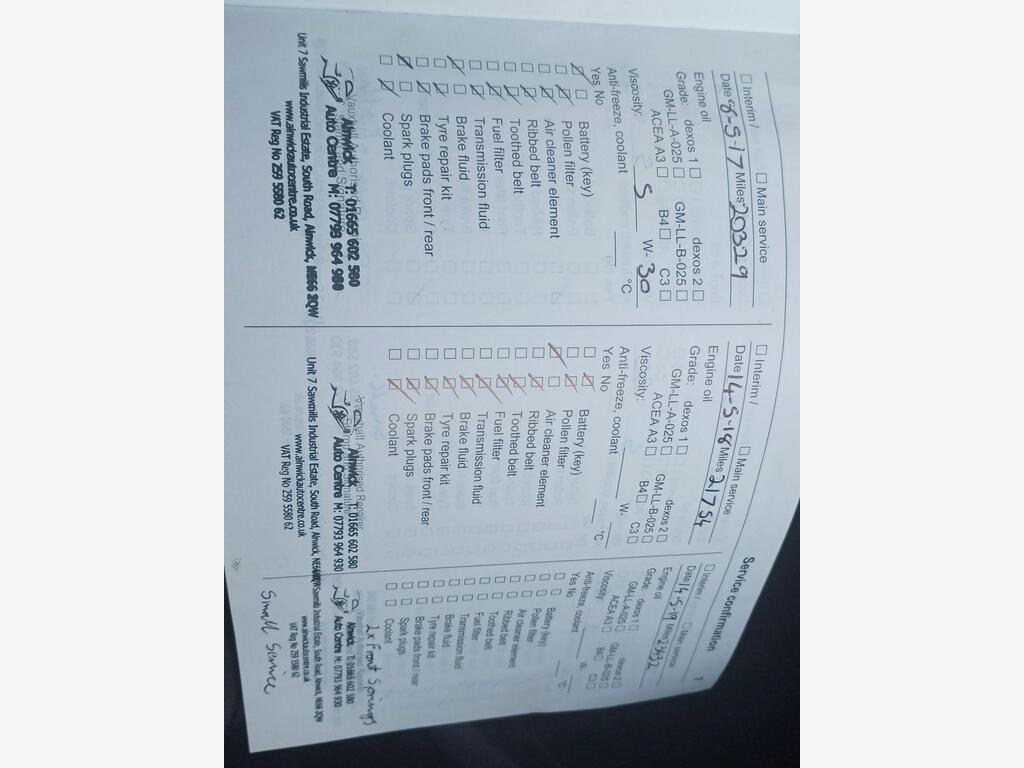 Service confirmation
7
Interim / Main service
Date 8-5-17 Miles 20329
Engine oil
Grade: dexos 1 dexos 2
GM-LL-A-025 GM-LL-B-025
ACEA A3 B4 C3
Viscosity: 5 W- 30
Anti-freeze, coolant °C
Yes No
Battery (key)
Pollen filter
Air cleaner element
Ribbed belt
Toothed belt
Fuel filter
Transmission fluid
Brake fluid
Tyre repair kit
Brake pads front / rear
Spark plugs
Coolant
Alnwick T: 01665 602 580
Auto Centre M: 07793 964 980
Unit 7 Sawmills Industrial Estate, South Road, Alnwick, NE66 2QW
www.alnwickautocentre.co.uk
VAT Reg No 259 5580 62
Interim / Main service
Date 14-5-18 Miles 21754
Engine oil
Grade: dexos 1 dexos 2
GM-LL-A-025 GM-LL-B-025
ACEA A3 B4 C3
Viscosity: W-
Anti-freeze, coolant °C
Yes No
Battery (key)
Pollen filter
Air cleaner element
Ribbed belt
Toothed belt
Fuel filter
Transmission fluid
Brake fluid
Tyre repair kit
Brake pads front / rear
Spark plugs
Coolant
Vauxhall Authorised Repairer
Alnwick T: 01665 602 580
Auto Centre M: 07793 964 930
Unit 7 Sawmills Industrial Estate, South Road, Alnwick,
www.alnwickautocentre.co.uk
VAT Reg No 259 5580 62
Interim / Main service
Date 14-5-19 Miles 23432
Engine oil
Grade: dexos 1 dexos 2
GM-LL-A-025 GM-LL-B-025
ACEA A3 B4 C3
Viscosity: W-
Anti-freeze, coolant °C
Yes No
Battery (key)
Pollen filter
Air cleaner element
Ribbed belt
Toothed belt
Fuel filter
Transmission fluid
Brake fluid
Tyre repair kit
Brake pads front / rear
Spark plugs
Coolant
2x Front Springs
Alnwick T: 01665 602 580
Auto Centre M: 07793 964 930
Sawmills Industrial Estate, South Road, Alnwick, NE66 2QW
www.alnwickautocentre.co.uk
VAT Reg No 259 5580 62
Small Service